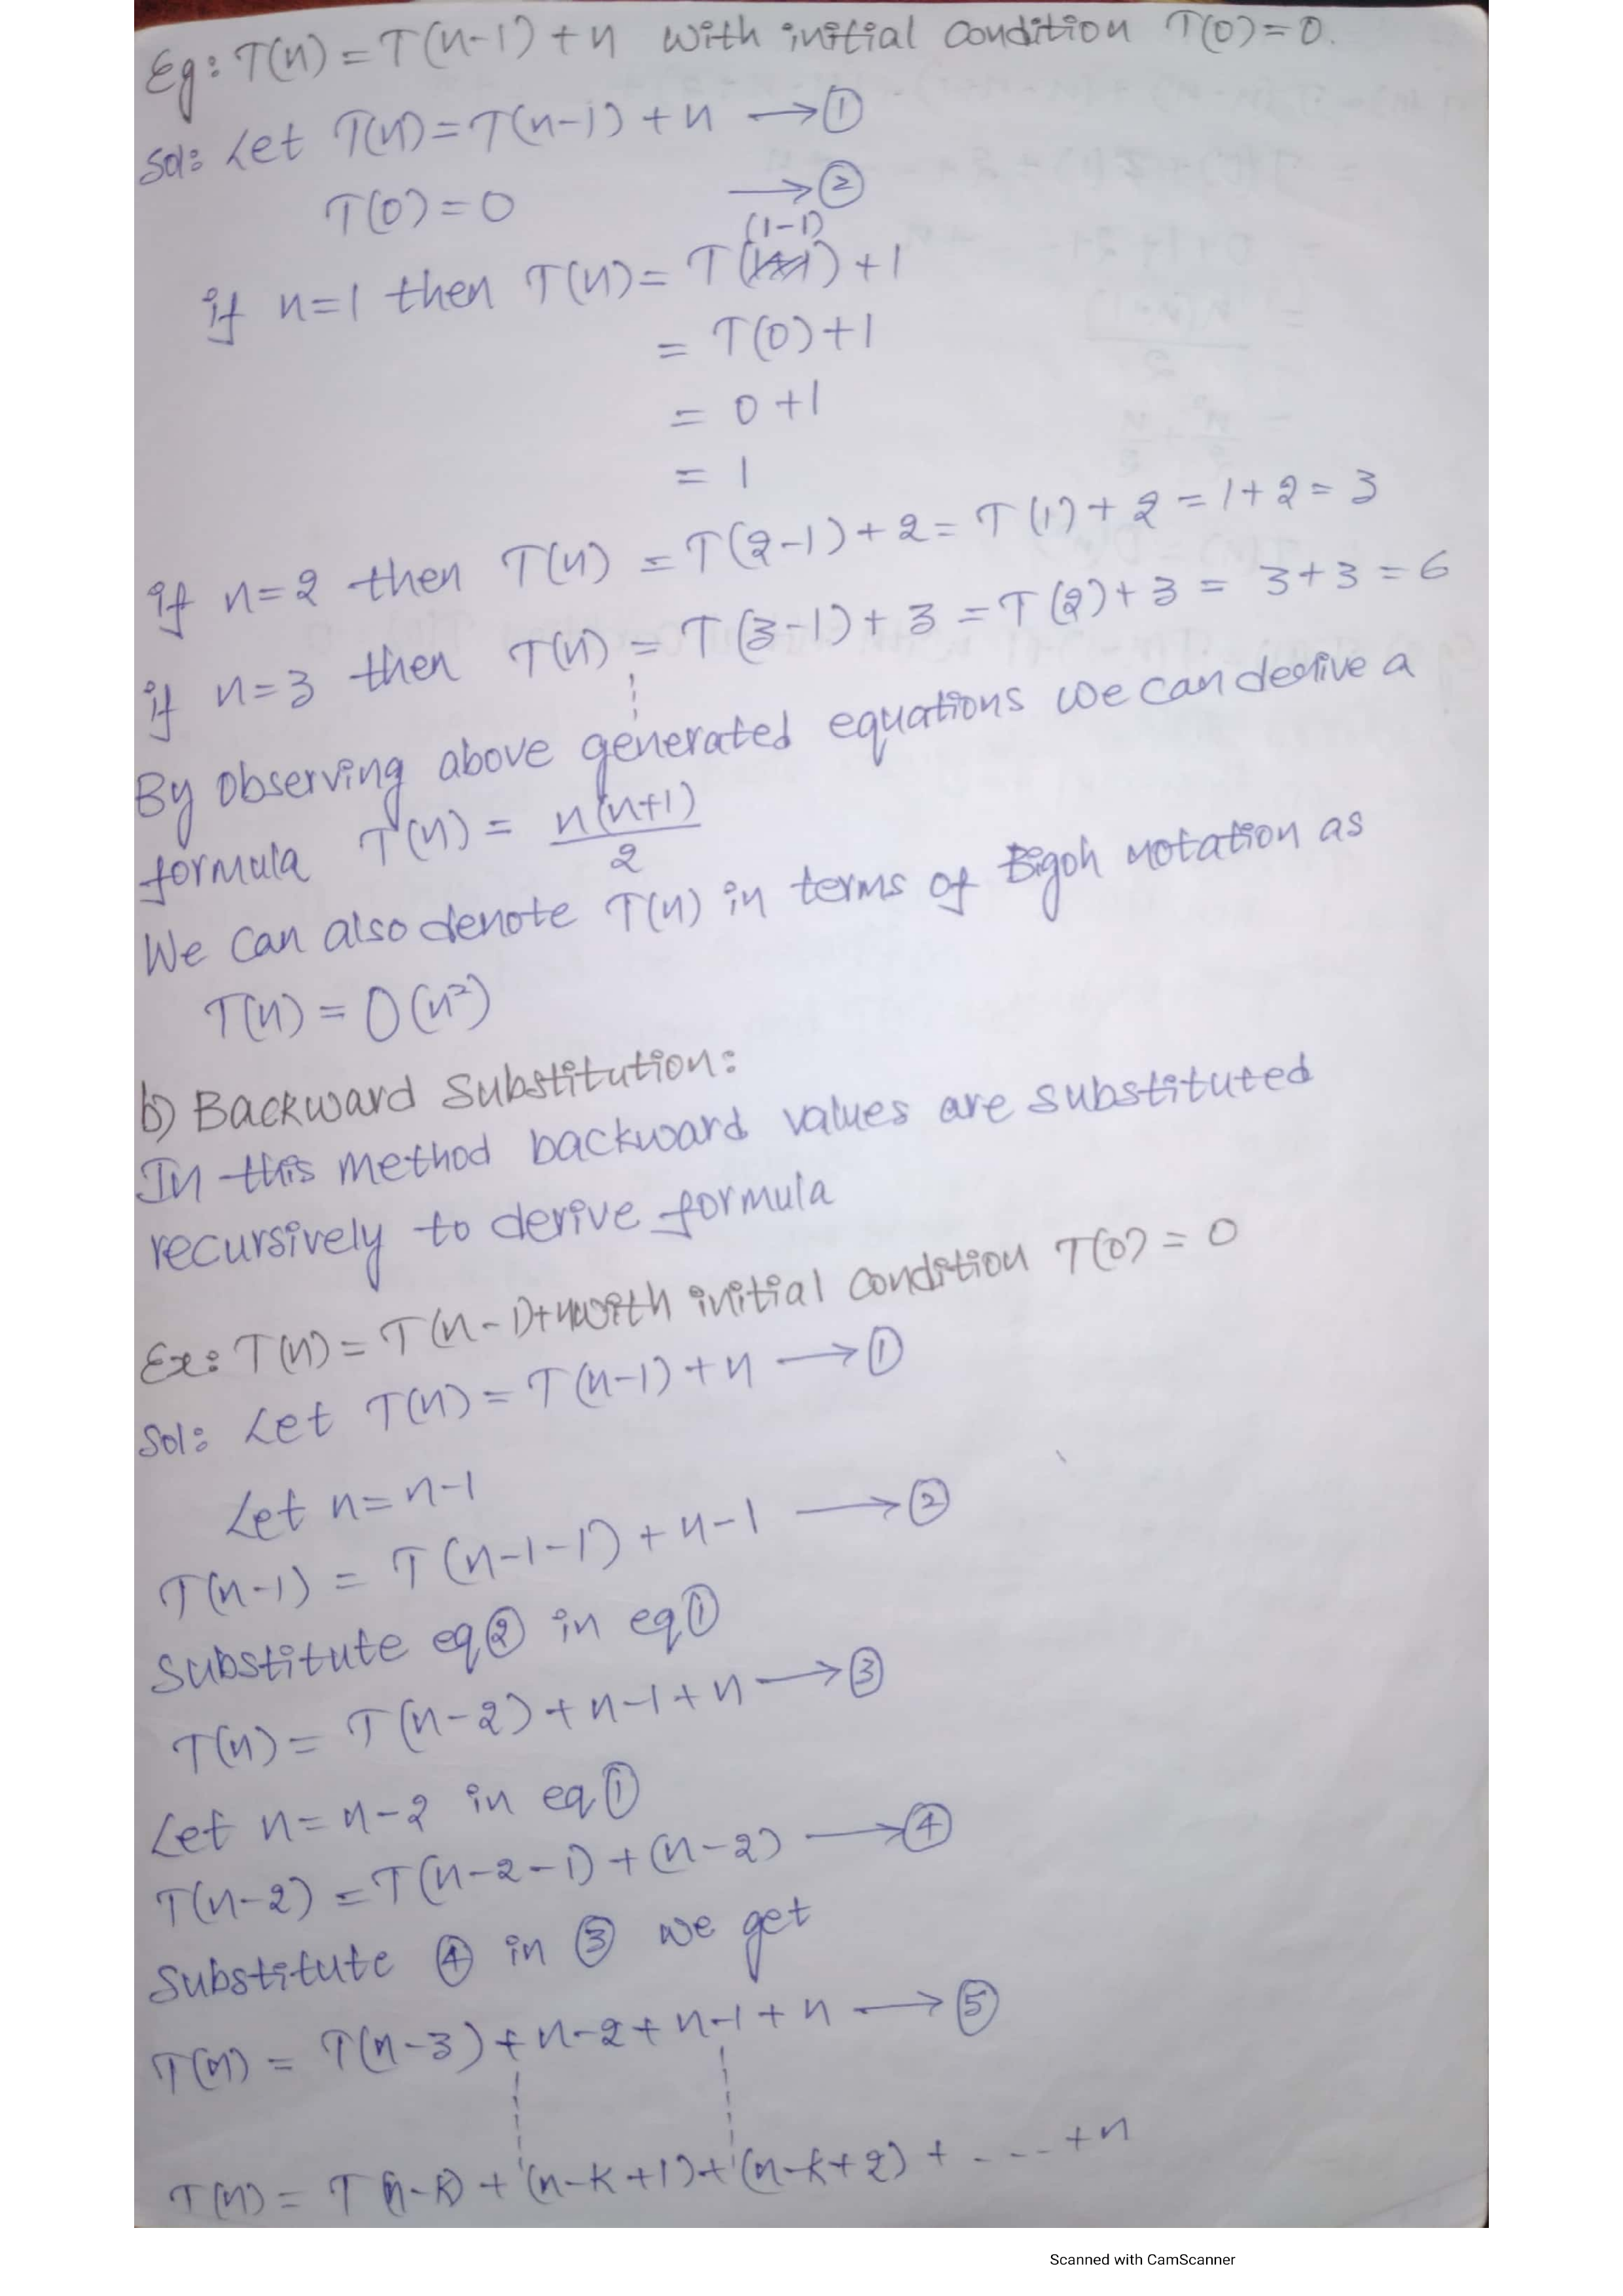 Eg: T(n) = T(n-1) + n with initial condition T(0) = 0.
Sol: Let T(n) = T(n-1) + n → ①
T(0) = 0 → ②
(1-1)
if n=1 then T(n) = T() + 1
= T(0) + 1
= 0 + 1
= 1
if n=2 then T(n) = T(2-1) + 2 = T(1) + 2 = 1+2 = 3
if n=3 then T(n) = T(3-1) + 3 = T(2) + 3 = 3+3 = 6
By observing above generated equations we can derive a
formula T(n) = n(n+1)/2
We can also denote T(n) in terms of Bigoh notation as
T(n) = O(n²)
b) Backward Substitution:
In this method backward values are substituted
recursively to derive formula
Ex: T(n) = T(n-1)+n with initial condition T(0) = 0
Sol: Let T(n) = T(n-1) + n → ①
Let n = n-1
T(n-1) = T(n-1-1) + n-1 → ②
Substitute eq② in eq①
T(n) = T(n-2) + n-1 + n → ③
Let n = n-2 in eq①
T(n-2) = T(n-2-1) + (n-2) → ④
Substitute ④ in ③ we get
T(n) = T(n-3) + n-2 + n-1 + n → ⑤
T(n) = T(n-k) + (n-k+1) + (n-k+2) + ---- + n
Scanned with CamScanner